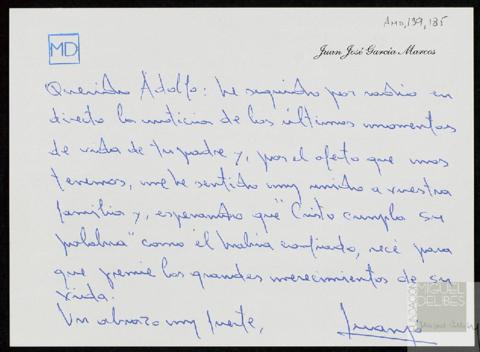 AMD,139,135
MD
Juan José García Marcos
Querido Adolfo: he seguido por radio en
directo la noticia de los últimos momentos
de vida de tu padre y, por el afecto que nos
tenemos, me he sentido muy unido a vuestra
familia y, esperando que "Cristo cumpla su
palabra" como él había confiado, recé para
que premie los grandes merecimientos de su
vida.
Un abrazo muy fuerte,
Juanjo
MIGUEL
DELIBES